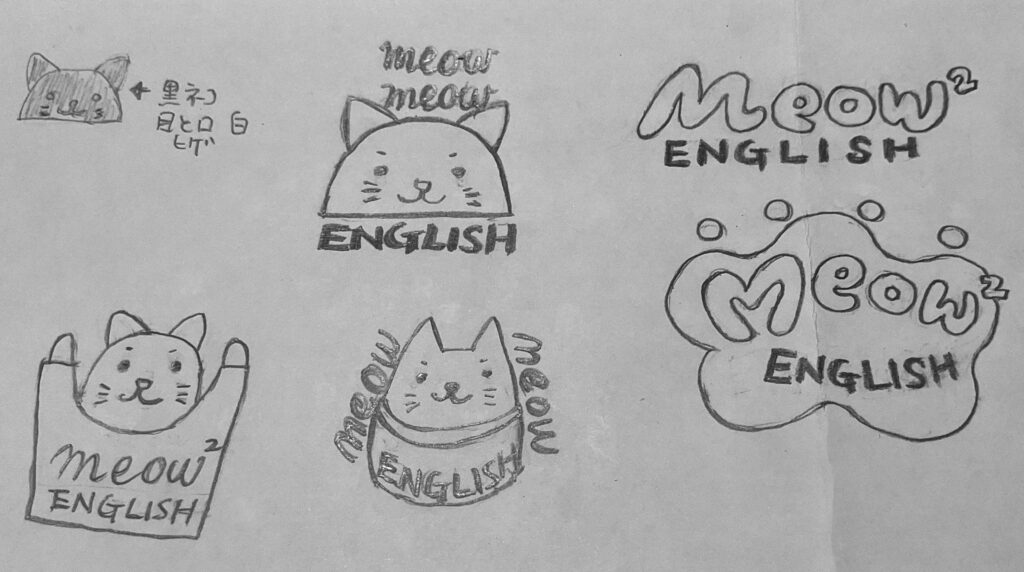 黒ネコ
目と口 白
ヒゲ
meow
meow
ENGLISH
Meow²
ENGLISH
Meow²
ENGLISH
meow²
ENGLISH
meow
meow
ENGLISH